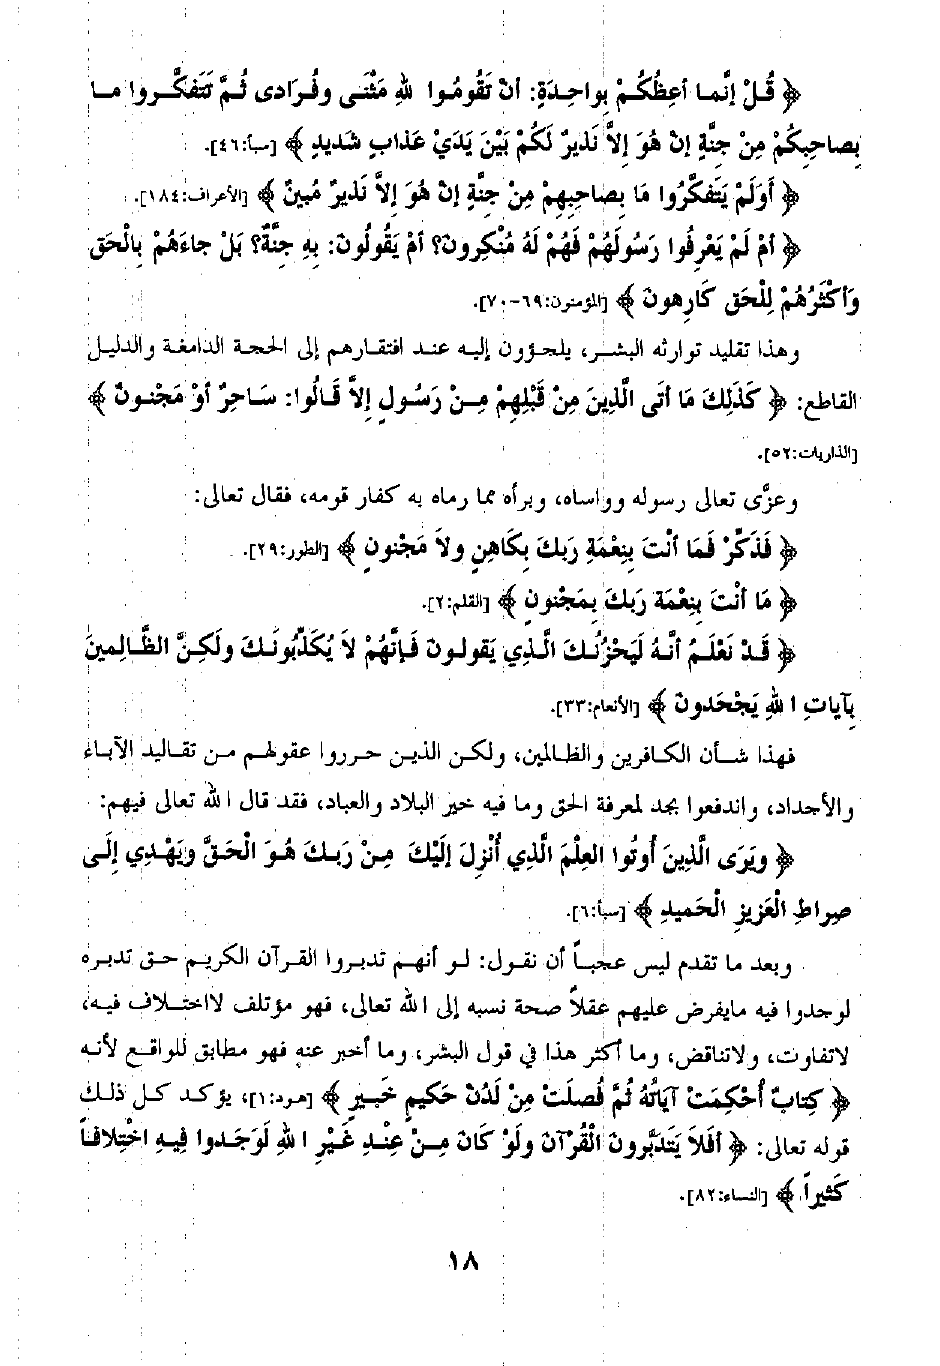 ﴿ قُلْ إنَّما أعِظُكُمْ بِواحِدَةٍ: أنْ تَقُومُوا للهِ مَثْنَى وفُرَادى ثُمَّ تَتَفكَّروا ما
بِصاحِبِكُمْ مِنْ جِنَّةٍ إنْ هُوَ إلاَّ نَذيرٌ لَكُمْ بَيْنَ يَدَيْ عَذابٍ شَديدٍ ﴾ [سبأ:٤٦].
﴿ أَوَلَمْ يَتَفكَّرُوا مَا بِصاحِبِهِمْ مِنْ جِنَّةٍ إنْ هُوَ إلاَّ نَذيرٌ مُبينٌ ﴾ [الأعراف:١٨٤].
﴿ أمْ لَمْ يَعْرِفُوا رَسُولَهُمْ فَهُمْ لَهُ مُنْكِرون؟ أمْ يَقُولُونَ: بِهِ جِنَّةٌ؟ بَلْ جاءَهُمْ بِالْحَق
وَأكْثَرُهُمْ لِلْحَق كَارِهونَ ﴾ [المؤمنون:٦٩-٧٠].
وهذا تقليد توارثه البشر، يلجؤون إليه عند افتقارهم إلى الحجة الدامغة والدليل
القاطع: ﴿ كَذَلِكَ مَا أتَى الَّذِينَ مِنْ قَبْلِهِمْ مِنْ رَسُولٍ إلاَّ قَالُوا: سَاحِرٌ أوْ مَجْنونٌ ﴾
[الذاريات:٥٢].
وعزَّى تعالى رسوله وواساه، وبرأه مما رماه به كفار قومه، فقال تعالى:
﴿ فَذَكِّرْ فَمَا أنْتَ بِنِعْمَةِ رَبكَ بِكَاهِنٍ ولاَ مَجْنونٍ ﴾ [الطور:٢٩].
﴿ مَا أنْتَ بِنِعْمَة رَبكَ بِمَجْنونٍ ﴾ [القلم:٢].
﴿ قَدْ نَعْلَمُ أنَّهُ لَيَحْزُنُكَ الَّذِي يَقولونَ فَإنَّهُمْ لاَ يُكَذِّبُونَكَ ولَكِنَّ الظَّالِمينَ
بِآياتِ اللهِ يَجْحَدونَ ﴾ [الأنعام:٣٣].
فهذا شأن الكافرين والظالمين، ولكن الذين حرروا عقولهم من تقاليد الآباء
والأجداد، واندفعوا بجد لمعرفة الحق وما فيه خير البلاد والعباد، فقد قال الله تعالى فيهم:
﴿ ويَرَى الَّذِينَ أُوتُوا العِلْمَ الَّذِي أُنْزِلَ إلَيْكَ مِنْ رَبكَ هُوَ الْحَقَّ ويَهْدِي إلَى
صِراطِ الْعَزيزِ الْحَميدِ ﴾ [سبأ:٦].
وبعد ما تقدم ليس عجباً أن نقول: لو أنهم تدبروا القرآن الكريم حق تدبره
لوجدوا فيه مايفرض عليهم عقلاً صحة نسبه إلى الله تعالى، فهو مؤتلف لااختلاف فيه،
لاتفاوت، ولاتناقض، وما أكثر هذا في قول البشر، وما أخبر عنه فهو مطابق للواقع لأنه
﴿ كِتابٌ أُحْكِمَتْ آيَاتُهُ ثُمَّ فُصلَتْ مِنْ لَدُنْ حَكيمٍ خَبيرٍ ﴾ [هود:١]، يؤكد كل ذلك
قوله تعالى: ﴿ أفَلاَ يَتَدَبَّرونَ الْقُرْآنَ ولَوْ كَانَ مِنْ عِنْدِ غَيْرِ اللهِ لَوَجَدوا فِيهِ اخْتِلافاً
كَثيراً ﴾ [النساء:٨٢].
١٨